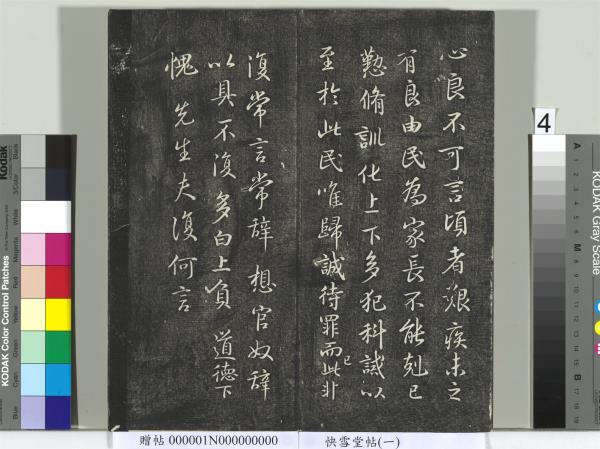 心良不可言頃者艱疾未之
有良由民為家長不能剋己
懃脩訓化上下多犯科誡以
至於此民唯歸誠待罪而此非
已
復常言常辞想官奴辞
以具不復多白上負道德下
愧先生夫復何言
4
贈帖 000001N000000000
快雪堂帖(一)
KODAK Color Control Patches
KODAK Gray Scale
Kodak
Blue
Cyan
Green
Yellow
Red
Magenta
White
3/Color
Black
A
1
2
3
4
5
6
M
8
9
10
11
12
13
14
15
B
17
18
19
C
Y
M